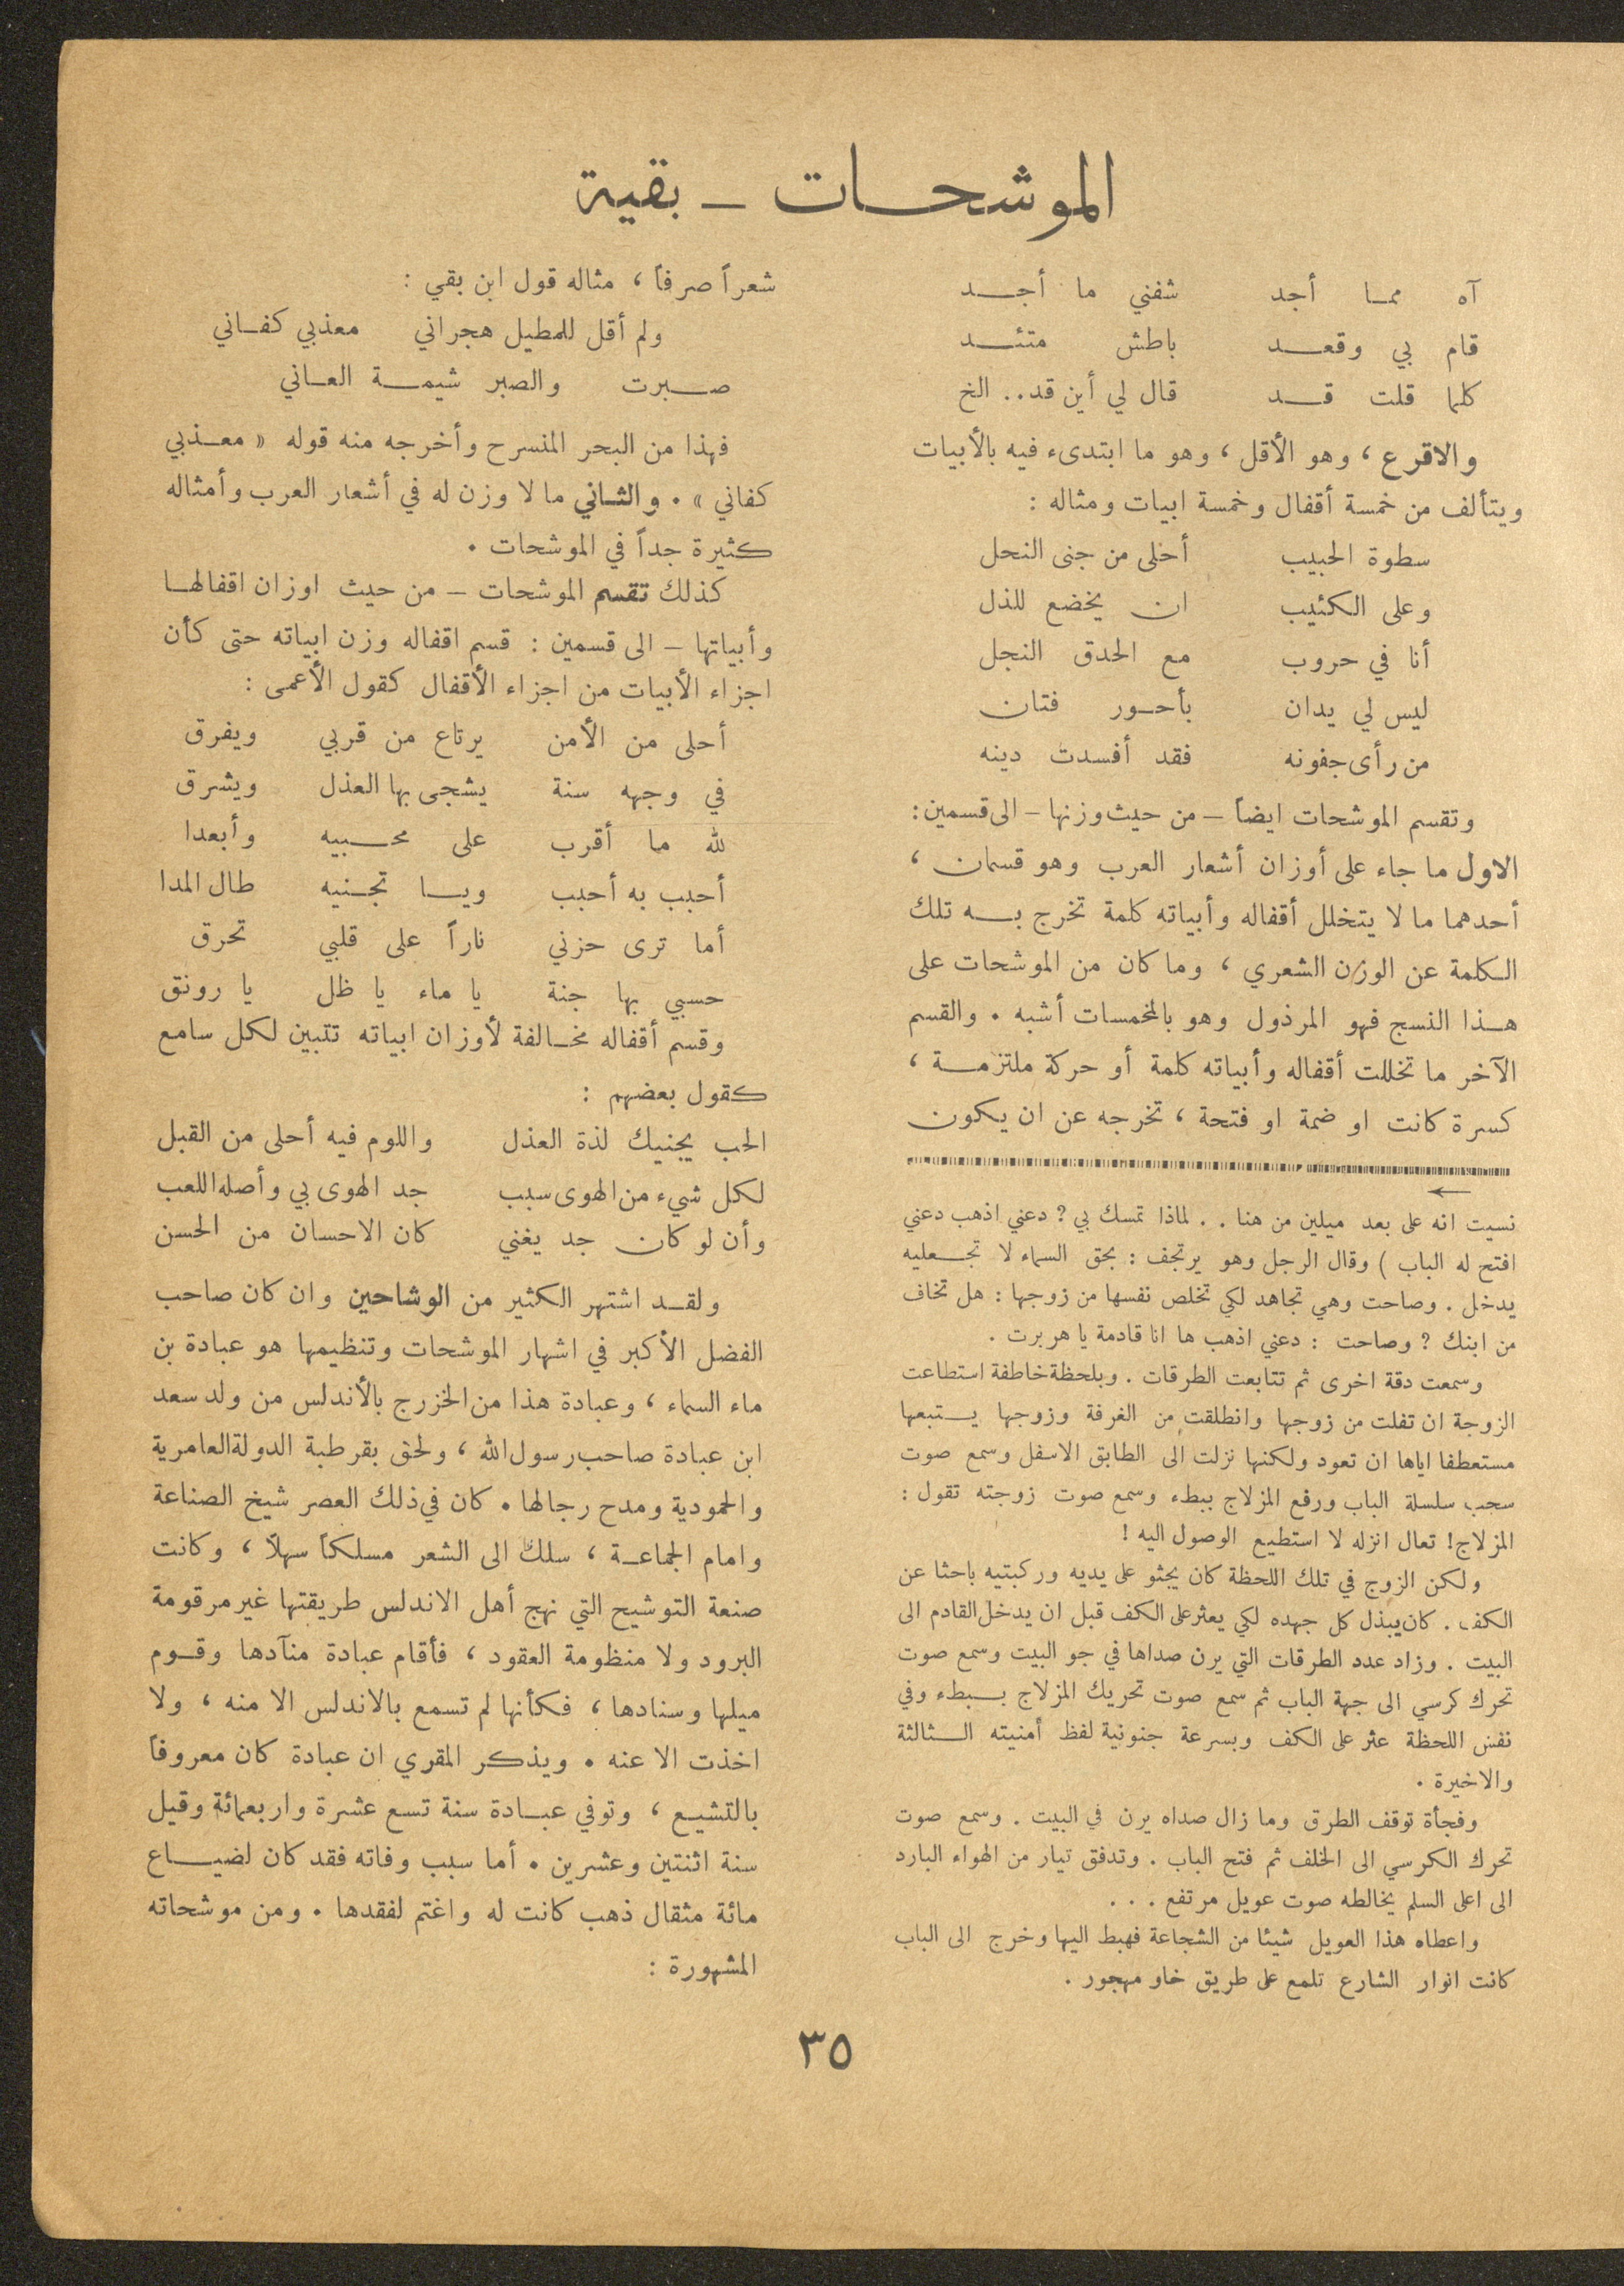 الموشحات - بقية
آه مما أجد شفني ما أجد
قام بي وقعد باطش متئد
كلما قلت قد قال لي أين قد.. الخ
والاقرع ، وهو الأقل ، وهو ما ابتدىء فيه بالأبيات
ويتألف من خمسة أقفال وخمسة ابيات ومثاله :
سطوة الحبيب أحلى من جنى النحل
وعلى الكئيب ان يخضع للذل
أنا في حروب مع الحدق النجل
ليس لي يدان بأحور فتان
من رأى جفونه فقد أفسدت دينه
وتقسم الموشحات ايضاً - من حيث وزنها - الى قسمين :
الاول ما جاء على أوزان أشعار العرب وهو قسمان ،
أحدهما ما لا يتخلل أقفاله وأبياته كلمة تخرج به تلك
الكلمة عن الوزن الشعري ، وما كان من الموشحات على
هذا النسج فهو المرذول وهو بالمخمسات أشبه . والقسم
الآخر ما تخللت أقفاله وأبياته كلمة أو حركة ملتزمة ،
كسرة كانت او ضمة او فتحة ، تخرجه عن ان يكون
←
نسيت انه على بعد ميلين من هنا . . لماذا تمسك بي ? دعني اذهب دعني
افتح له الباب ) وقال الرجل وهو يرتجف : بحق السماء لا تجعليه
يدخل . وصاحت وهي تجاهد لكي تخلص نفسها من زوجها : هل تخاف
من ابنك ? وصاحت : دعني اذهب ها انا قادمة يا هربرت .
وسمعت دقة اخرى ثم تتابعت الطرقات . وبلحظة خاطفة استطاعت
الزوجة ان تفلت من زوجها وانطلقت من الغرفة وزوجها يستبعها
مستعطفا اياها ان تعود ولكنها نزلت الى الطابق الاسفل وسمع صوت
سحب سلسلة الباب ورفع المزلاج ببطء وسمع صوت زوجته تقول :
المزلاج ! تعال انزله لا استطيع الوصول اليه !
ولكن الزوج في تلك اللحظة كان يجثو على يديه وركبتيه باحثا عن
الكف . كان يبذل كل جهده لكي يعثر على الكف قبل ان يدخل القادم الى
البيت . وزاد عدد الطرقات التي يرن صداها في جو البيت وسمع صوت
تحرك كرسي الى جهة الباب ثم سمع صوت تحريك المزلاج ببطء وفي
نفس اللحظة عثر على الكف وبسرعة جنونية لفظ أمنيته الثالثة
والاخيرة .
وفجأة توقف الطرق وما زال صداه يرن في البيت . وسمع صوت
تحرك الكرسي الى الخلف ثم فتح الباب . وتدفق تيار من الهواء البارد
الى اعلى السلم يخالطه صوت عويل مرتفع . . .
واعطاه هذا العويل شيئا من الشجاعة فهبط اليها وخرج الى الباب
كانت انوار الشارع تلمع على طريق خاو مهجور .
شعراً صرفاً ، مثاله قول ابن بقي :
ولم أقل للمطيل هجراني معذبي كفاني
صبرت والصبر شيمة العاني
فهذا من البحر المنسرح وأخرجه منه قوله « معذبي
كفاني » . والثاني ما لا وزن له في أشعار العرب وأمثاله
كثيرة جداً في الموشحات .
كذلك تقسم الموشحات - من حيث اوزان اقفالها
وأبياتها - الى قسمين : قسم اقفاله وزن ابياته حتى كأن
اجزاء الأبيات من اجزاء الأقفال كقول الأعمى :
أحلى من الأمن يرتاع من قربي ويفرق
في وجهه سنة يشجى بها العذل ويشرق
لله ما أقرب على محبيه وأبعدا
أحبب به أحبب ويا تجنيه طال المدا
أما ترى حزني ناراً على قلبي تحرق
حسبي بها جنة يا ماء يا ظل يا رونق
وقسم أقفاله مخالفة لأوزان ابياته تتبين لكل سامع
كقول بعضهم :
الحب يجنيك لذة العذل واللوم فيه أحلى من القبل
لكل شيء من الهوى سبب جد الهوى بي وأصله اللعب
وأن لو كان جد يغني كان الاحسان من الحسن
ولقد اشتهر الكثير من الوشاحين وان كان صاحب
الفضل الأكبر في اشهار الموشحات وتنظيمها هو عبادة بن
ماء السماء ، وعبادة هذا من الخزرج بالأندلس من ولد سعد
ابن عبادة صاحب رسول الله ، ولحق بقرطبة الدولة العامرية
والحمودية ومدح رجالها . كان في ذلك العصر شيخ الصناعة
وامام الجماعة ، سلك الى الشعر مسلكاً سهلاً ، وكانت
صنعة التوشيح التي نهج أهل الاندلس طريقتها غير مرقومة
البرود ولا منظومة العقود ، فأقام عبادة منآدها وقوم
ميلها وسنادها ، فكأنها لم تسمع بالاندلس الا منه ، ولا
اخذت الا عنه . ويذكر المقري ان عبادة كان معروفاً
بالتشيع ، وتوفي عبادة سنة تسع عشرة واربعمائة وقيل
سنة اثنتين وعشرين . أما سبب وفاته فقد كان لضياع
مائة مثقال ذهب كانت له واغتم لفقدها . ومن موشحاته
المشهورة :
٣٥